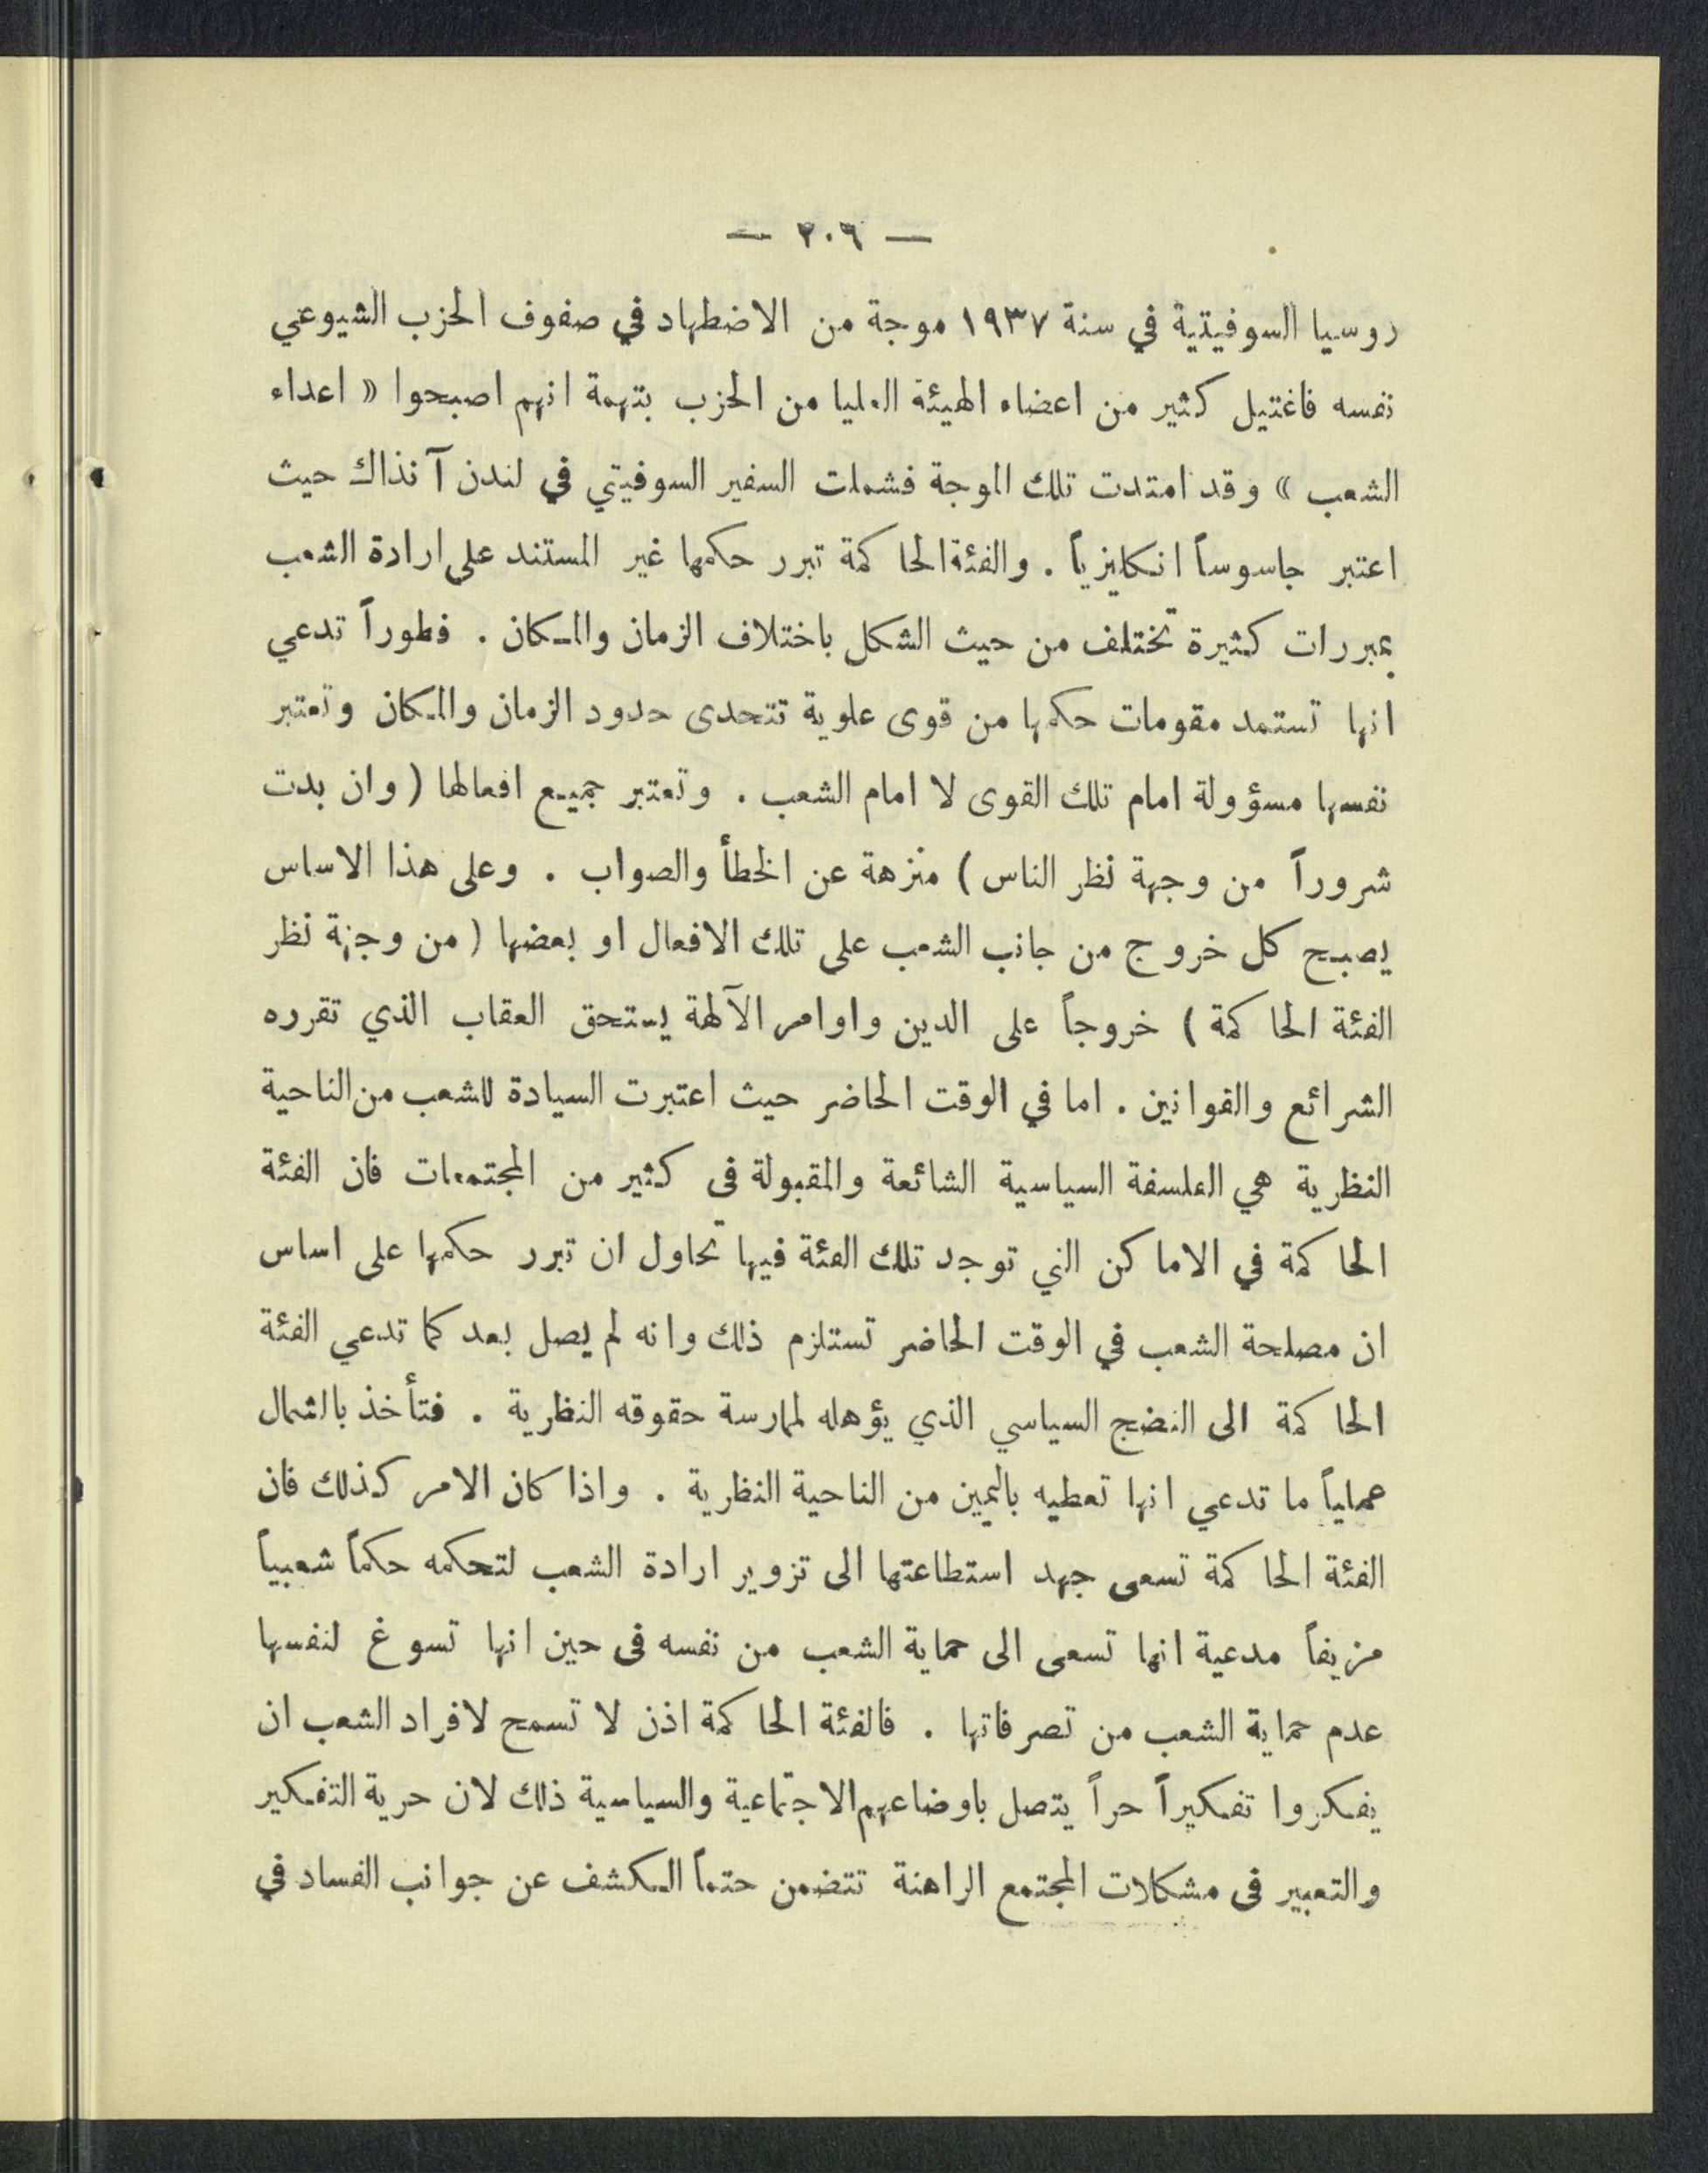 — ٢٠٦ —
روسيا السوفيتية في سنة ١٩٣٧ موجة من الاضطهاد في صفوف الحزب الشيوعي
نفسه فاغتيل كثير من اعضاء الهيئة العليا من الحزب بتهمة انهم اصبحوا « اعداء
الشعب » وقد امتدت تلك الموجة فشملت السفير السوفيتي في لندن آنذاك حيث
اعتبر جاسوساً انكليزياً . والفئة الحاكمة تبرر حكمها غير المستند على ارادة الشعب
بمبررات كثيرة تختلف من حيث الشكل باختلاف الزمان والمكان . فطوراً تدعي
انها تستمد مقومات حكمها من قوى علوية تتحدى حدود الزمان والمكان وتعتبر
نفسها مسؤولة امام تلك القوى لا امام الشعب . وتعتبر جميع افعالها ( وان بدت
شروراً من وجهة نظر الناس ) منزهة عن الخطأ والصواب . وعلى هذا الاساس
يصبح كل خروج من جانب الشعب على تلك الافعال او بعضها ( من وجهة نظر
الفئة الحاكمة ) خروجاً على الدين واوامر الآلهة يستحق العقاب الذي تقرره
الشرائع والقوانين . اما في الوقت الحاضر حيث اعتبرت السيادة للشعب من الناحية
النظرية هي الفلسفة السياسية الشائعة والمقبولة فى كثير من المجتمعات فان الفئة
الحاكمة في الاماكن التي توجد تلك الفئة فيها تحاول ان تبرر حكمها على اساس
ان مصلحة الشعب في الوقت الحاضر تستلزم ذلك وانه لم يصل بعد كما تدعي الفئة
الحاكمة الى النضج السياسي الذي يؤهله لممارسة حقوقه النظرية . فتأخذ بالشمال
عملياً ما تدعي انها تعطيه باليمين من الناحية النظرية . واذا كان الامر كذلك فان
الفئة الحاكمة تسعى جهد استطاعتها الى تزوير ارادة الشعب لتحكمه حكماً شعبياً
مزيفاً مدعية انها تسعى الى حماية الشعب من نفسه فى حين انها تسوغ لنفسها
عدم حماية الشعب من تصرفاتها . فالفئة الحاكمة اذن لا تسمح لافراد الشعب ان
يفكروا تفكيراً حراً يتصل باوضاعهم الاجتماعية والسياسية ذلك لان حرية التفكير
والتعبير فى مشكلات المجتمع الراهنة تتضمن حتماً الكشف عن جوانب الفساد في